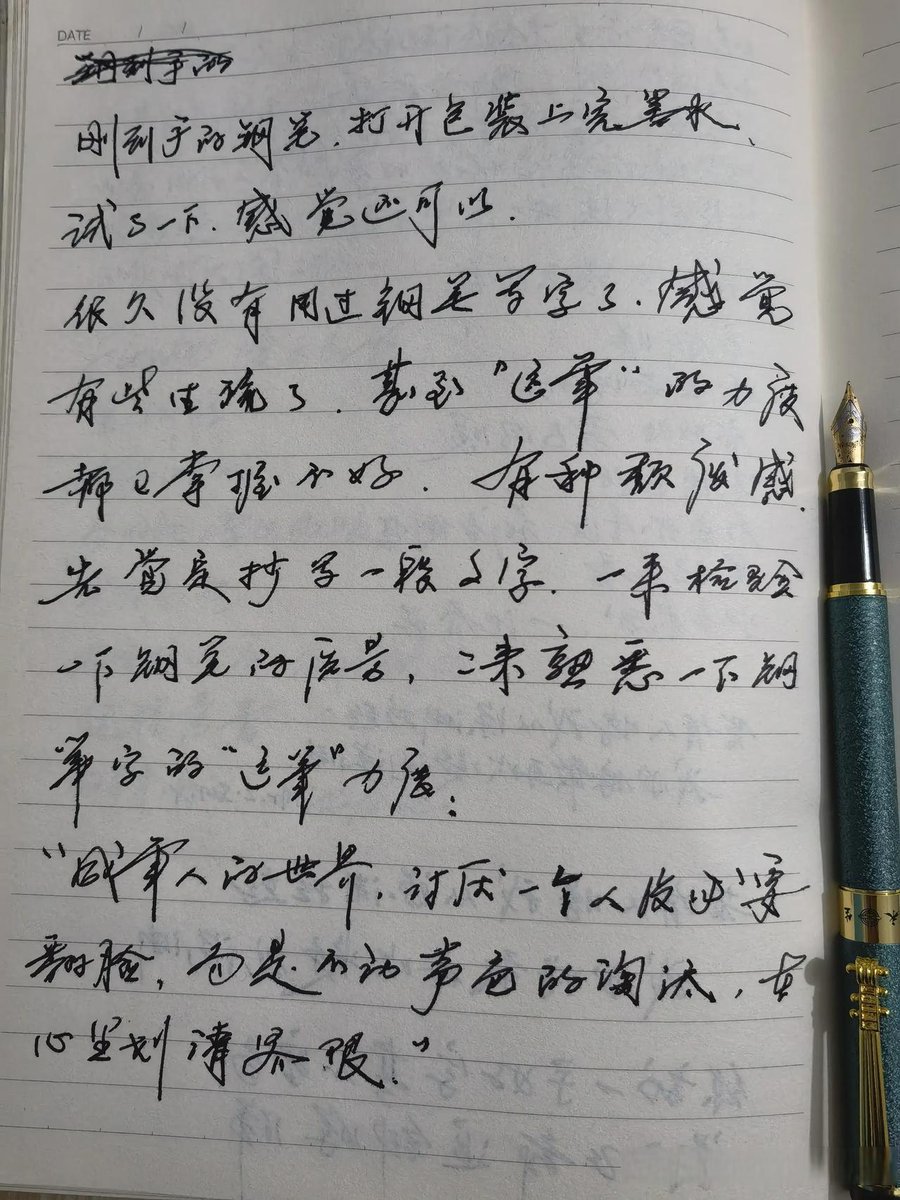 DATE / /
刚到手的
刚到手的钢笔,打开包装上完墨水、
试了一下.感觉还可以.
很久没有用过钢笔写字了.感觉
有些生疏了.甚至"运笔"的力度
都已掌握不好.有种颓废感.
先当是抄写一段文字.一来检验
一下钢笔的质量,二来熟悉一下钢
笔字的"运笔"力度:
"成年人的世界,讨厌一个人没必要
翻脸,而是不动声色的淘汰,在
心里划清界限."
永生